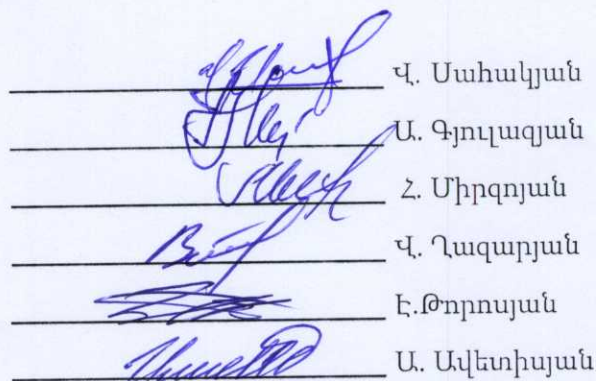 Վ. Սահակյան
Ա. Գյուլազյան
Հ. Միրզոյան
Վ. Ղազարյան
Է.Թորոսյան
Ա. Ավետիսյան